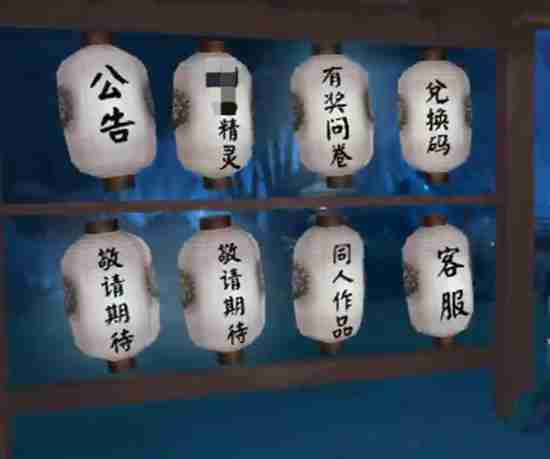 公告
精灵
有奖问卷
兑换码
敬请期待
敬请期待
同人作品
客服